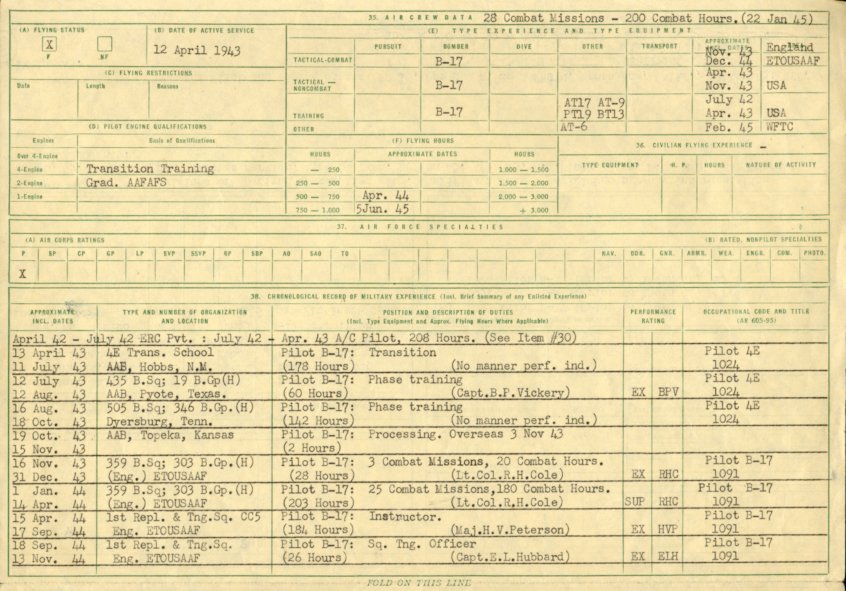 35. AIR CREW DATA 28 Combat Missions - 200 Combat Hours. (22 Jan 45)
(A) FLYING STATUS
X
F
NF
(B) DATE OF ACTIVE SERVICE
12 April 1943
(C) FLYING RESTRICTIONS
Date Length Reasons
(D) PILOT ENGINE QUALIFICATIONS
Engines Basis of Qualifications
Over 4-Engine
4-Engine Transition Training
2-Engine Grad. AAFAFS
1-Engine
(E) TYPE EXPERIENCE AND TYPE EQUIPMENT
PURSUIT BOMBER DIVE OTHER TRANSPORT APPROXIMATE
Nov. 43 England
TACTICAL-COMBAT B-17 Dec. 44 ETOUSAAF
Apr. 43
TACTICAL — NONCOMBAT B-17 Nov. 43 USA
July 42
AT17 AT-9
TRAINING B-17 PT19 BT13 Apr. 43 USA
OTHER AT-6 Feb. 45 WFTC
(F) FLYING HOURS
HOURS APPROXIMATE DATES HOURS
— 250 1.000 — 1.500
250 — 500 1.500 — 2.000
500 — 750 Apr. 44 2.000 — 3.000
750 — 1.000 5Jun. 45 + 3.000
36. CIVILIAN FLYING EXPERIENCE
TYPE EQUIPMENT H. P. HOURS NATURE OF ACTIVITY
37. AIR FORCE SPECIALTIES
(A) AIR CORPS RATINGS (B) RATED, NONPILOT SPECIALTIES
P SP CP GP LP SVP SSVP BP SBP AO SAO TO NAV. BDR. GNR. ARMR. WEA. ENGR. COM. PHOTO.
X
38. CHRONOLOGICAL RECORD OF MILITARY EXPERIENCE (Incl. Brief Summary of any Enlisted Experience)
APPROXIMATE INCL. DATES TYPE AND NUMBER OF ORGANIZATION AND LOCATION POSITION AND DESCRIPTION OF DUTIES (Incl. Type Equipment and Approx. Flying Hours Where Applicable) PERFORMANCE RATING OCCUPATIONAL CODE AND TITLE (AR 605-95)
April 42 - July 42 ERC Pvt. : July 42 - Apr. 43 A/C Pilot, 208 Hours. (See Item #30)
13 April 43 4E Trans. School Pilot B-17: Transition Pilot 4E
11 July 43 AAB, Hobbs, N.M. (178 Hours) (No manner perf. ind.) 1024
12 July 43 435 B.Sq; 19 B.Gp(H) Pilot B-17: Phase training Pilot 4E
12 Aug. 43 AAB, Pyote, Texas. (60 Hours) (Capt.B.P.Vickery) EX BPV 1024
16 Aug. 43 505 B.Sq; 346 B.Gp.(H) Pilot B-17: Phase training Pilot 4E
18 Oct. 43 Dyersburg, Tenn. (142 Hours) (No manner perf. ind.) 1024
19 Oct. 43 AAB, Topeka, Kansas Pilot B-17: Processing. Overseas 3 Nov 43
15 Nov. 43 (2 Hours)
16 Nov. 43 359 B.Sq; 303 B.Gp.(H) Pilot B-17: 3 Combat Missions, 20 Combat Hours. Pilot B-17
31 Dec. 43 (Eng.) ETOUSAAF (28 Hours) (Lt.Col.R.H.Cole) EX RHC 1091
1 Jan. 44 359 B.Sq; 303 B.Gp.(H) Pilot B-17: 25 Combat Missions,180 Combat Hours. Pilot B-17
14 Apr. 44 (Eng.) ETOUSAAF (203 Hours) (Lt.Col.R.H.Cole) SUP RHC 1091
15 Apr. 44 1st Repl. & Tng.Sq. CC5 Pilot B-17: Instructor. Pilot B-17
17 Sep. 44 Eng. ETOUSAAF (184 Hours) (Maj.H.V.Peterson) EX HVP 1091
18 Sep. 44 1st Repl. & Tng.Sq. Pilot B-17: Sq. Tng. Officer Pilot B-17
13 Nov. 44 Eng. ETOUSAAF (26 Hours) (Capt.E.L.Hubbard) EX ELH 1091
FOLD ON THIS LINE